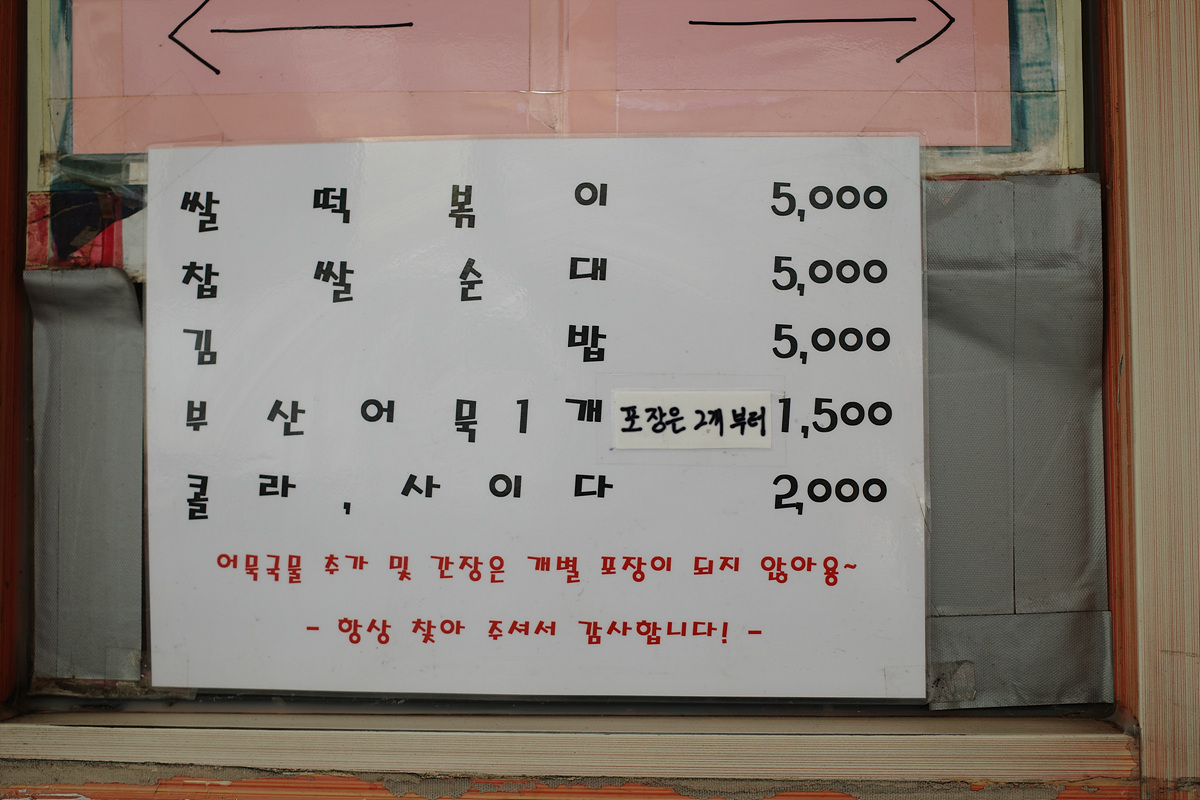 쌀떡볶이 5,000
찹쌀순대 5,000
김밥 5,000
부산어묵1개 포장은 2개 부터 1,500
콜라,사이다 2,000
어묵국물 추가 및 간장은 개별 포장이 되지 않아용~
- 항상 찾아 주셔서 감사합니다! -